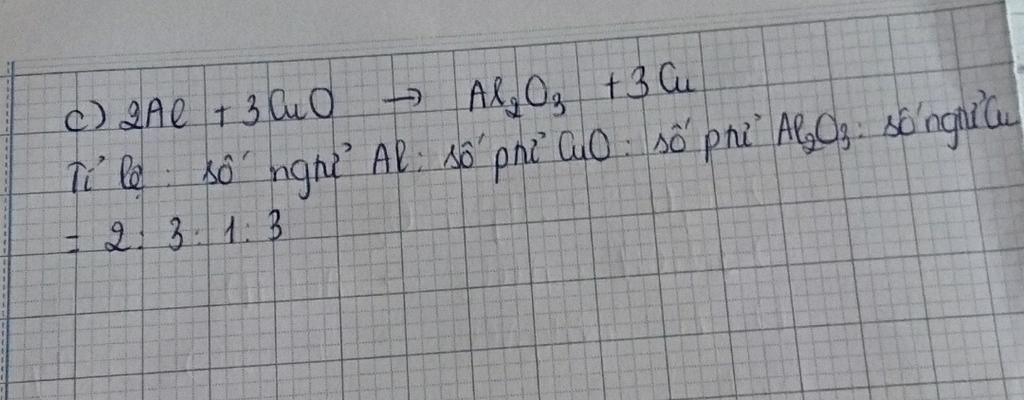 c) 2Al + 3CuO → Al₂O₃ + 3Cu
Tỉ lệ : số nghỉ Al : số phỉ CuO : số phỉ Al₂O₃ : số nghỉ Cu
= 2 : 3 : 1 : 3